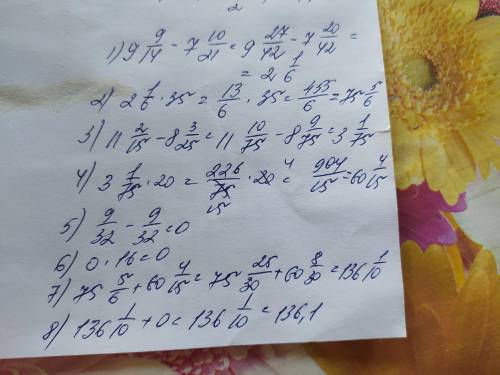 2
1) 9 9/14 - 7 10/21 = 9 27/42 - 7 20/42 =
= 2 1/6
2) 2 1/6 · 35 = 13/6 · 35 = 455/6 = 75 5/6
3) 11 2/15 - 8 3/25 = 11 10/75 - 8 9/75 = 3 1/75
4) 3 1/75 · 20 = 226/75 15 · 20 4 = 904/15 = 60 4/15
5) 9/32 - 9/32 = 0
6) 0 · 16 = 0
7) 75 5/6 + 60 4/15 = 75 25/30 + 60 8/30 = 136 1/10
8) 136 1/10 + 0 = 136 1/10 = 136,1